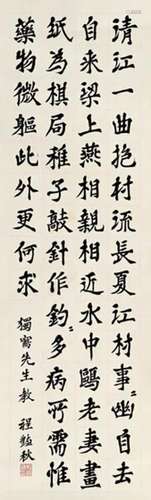 清江一曲抱村流長夏江村事〻幽自去
自来梁上燕相親相近水中鷗老妻畫
紙為棋局稚子敲針作釣〻多病所需惟
藥物微軀此外更何求
獨先生教 程艷秋